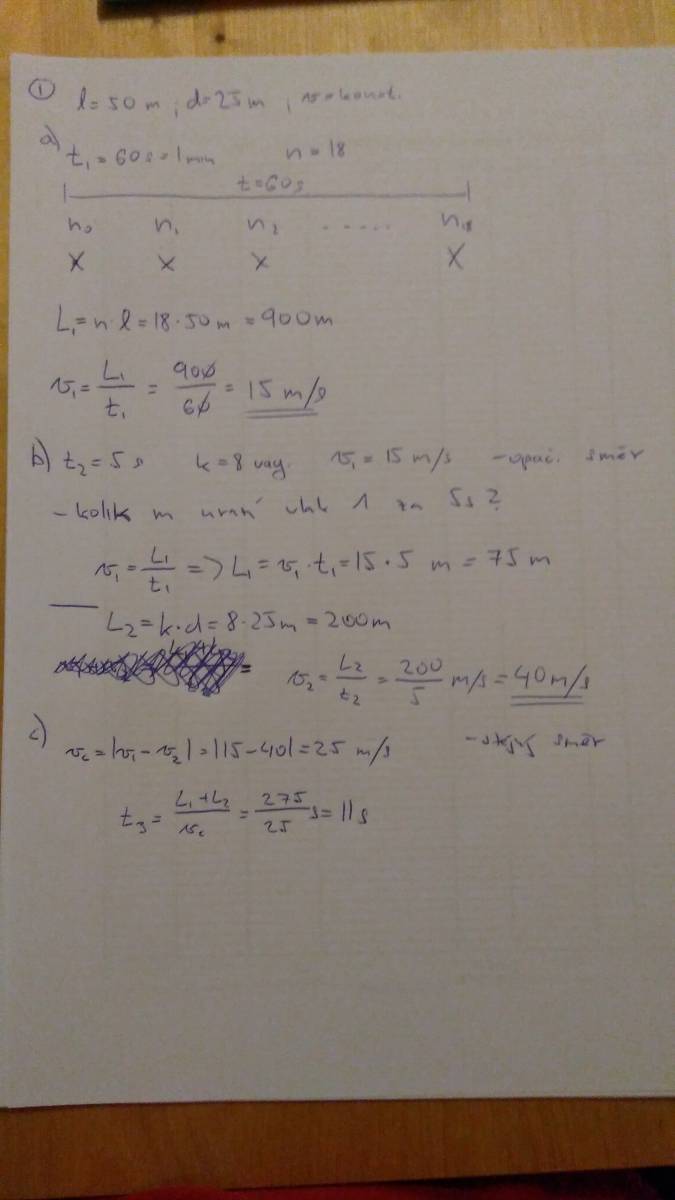 1 l=50 m ; d=25 m ; v=konst.
a) t₁=60s=1min n=18
t=60s
n₀ n₁ n₂ ..... n₁₈
X X X X
L₁=n·l=18·50m=900m
v₁= L₁/t₁ = 900/60 = 15 m/s
b) t₂=5s k=8 vag. v₁=15 m/s -opač. směr
-kolik m urazí vlak 1 za 5s?
v₁= L₁/t₁ => L₁=v₁·t₁=15·5 m=75m
L₂=k·d=8·25m=200m
= v₂= L₂/t₂ = 200/5 m/s=40m/s
c) v꜀=|v₁-v₂|=|15-40|=25 m/s -stejný směr
t₃= L₁+L₂/v꜀ = 275/25 s=11s